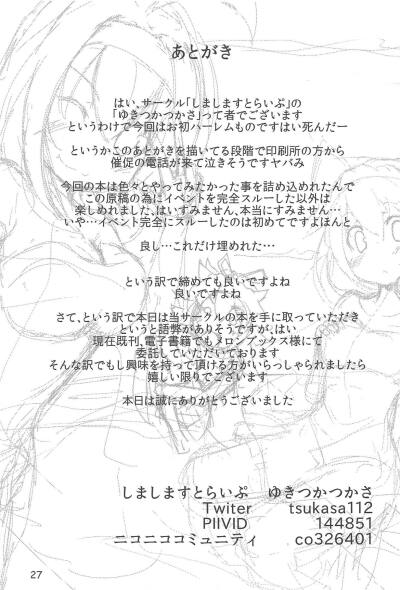 あとがき
はい、サークル「しましますとらいぷ」の
「ゆきつかつかさ」って者でございます
というわけで今回はお初ハーレムものですはい死んだー
というかこのあとがきを描いてる段階で印刷所の方から
催促の電話が来て泣きそうですヤバみ
今回の本は色々とやってみたかった事を詰め込めれたんで
この原稿の為にイベントを完全スルーした以外は
楽しめれました、はいすみません、本当にすみません…
いや…イベント完全にスルーしたのは初めてですよほんと
良し…これだけ埋めれた…
という訳で締めても良いですよね
良いですよね
さて、という訳で本日は当サークルの本を手に取っていただき
というと語弊がありそうですが、はい
現在既刊、電子書籍でもメロンブックス様にて
委託していただいております
そんな訳でもし興味を持って頂ける方がいらっしゃられましたら
嬉しい限りでございます
本日は誠にありがとうございました
しましますとらいぷ ゆきつかつかさ
Twiter tsukasa112
PIIVID 144851
ニコニココミュニティ co326401
27